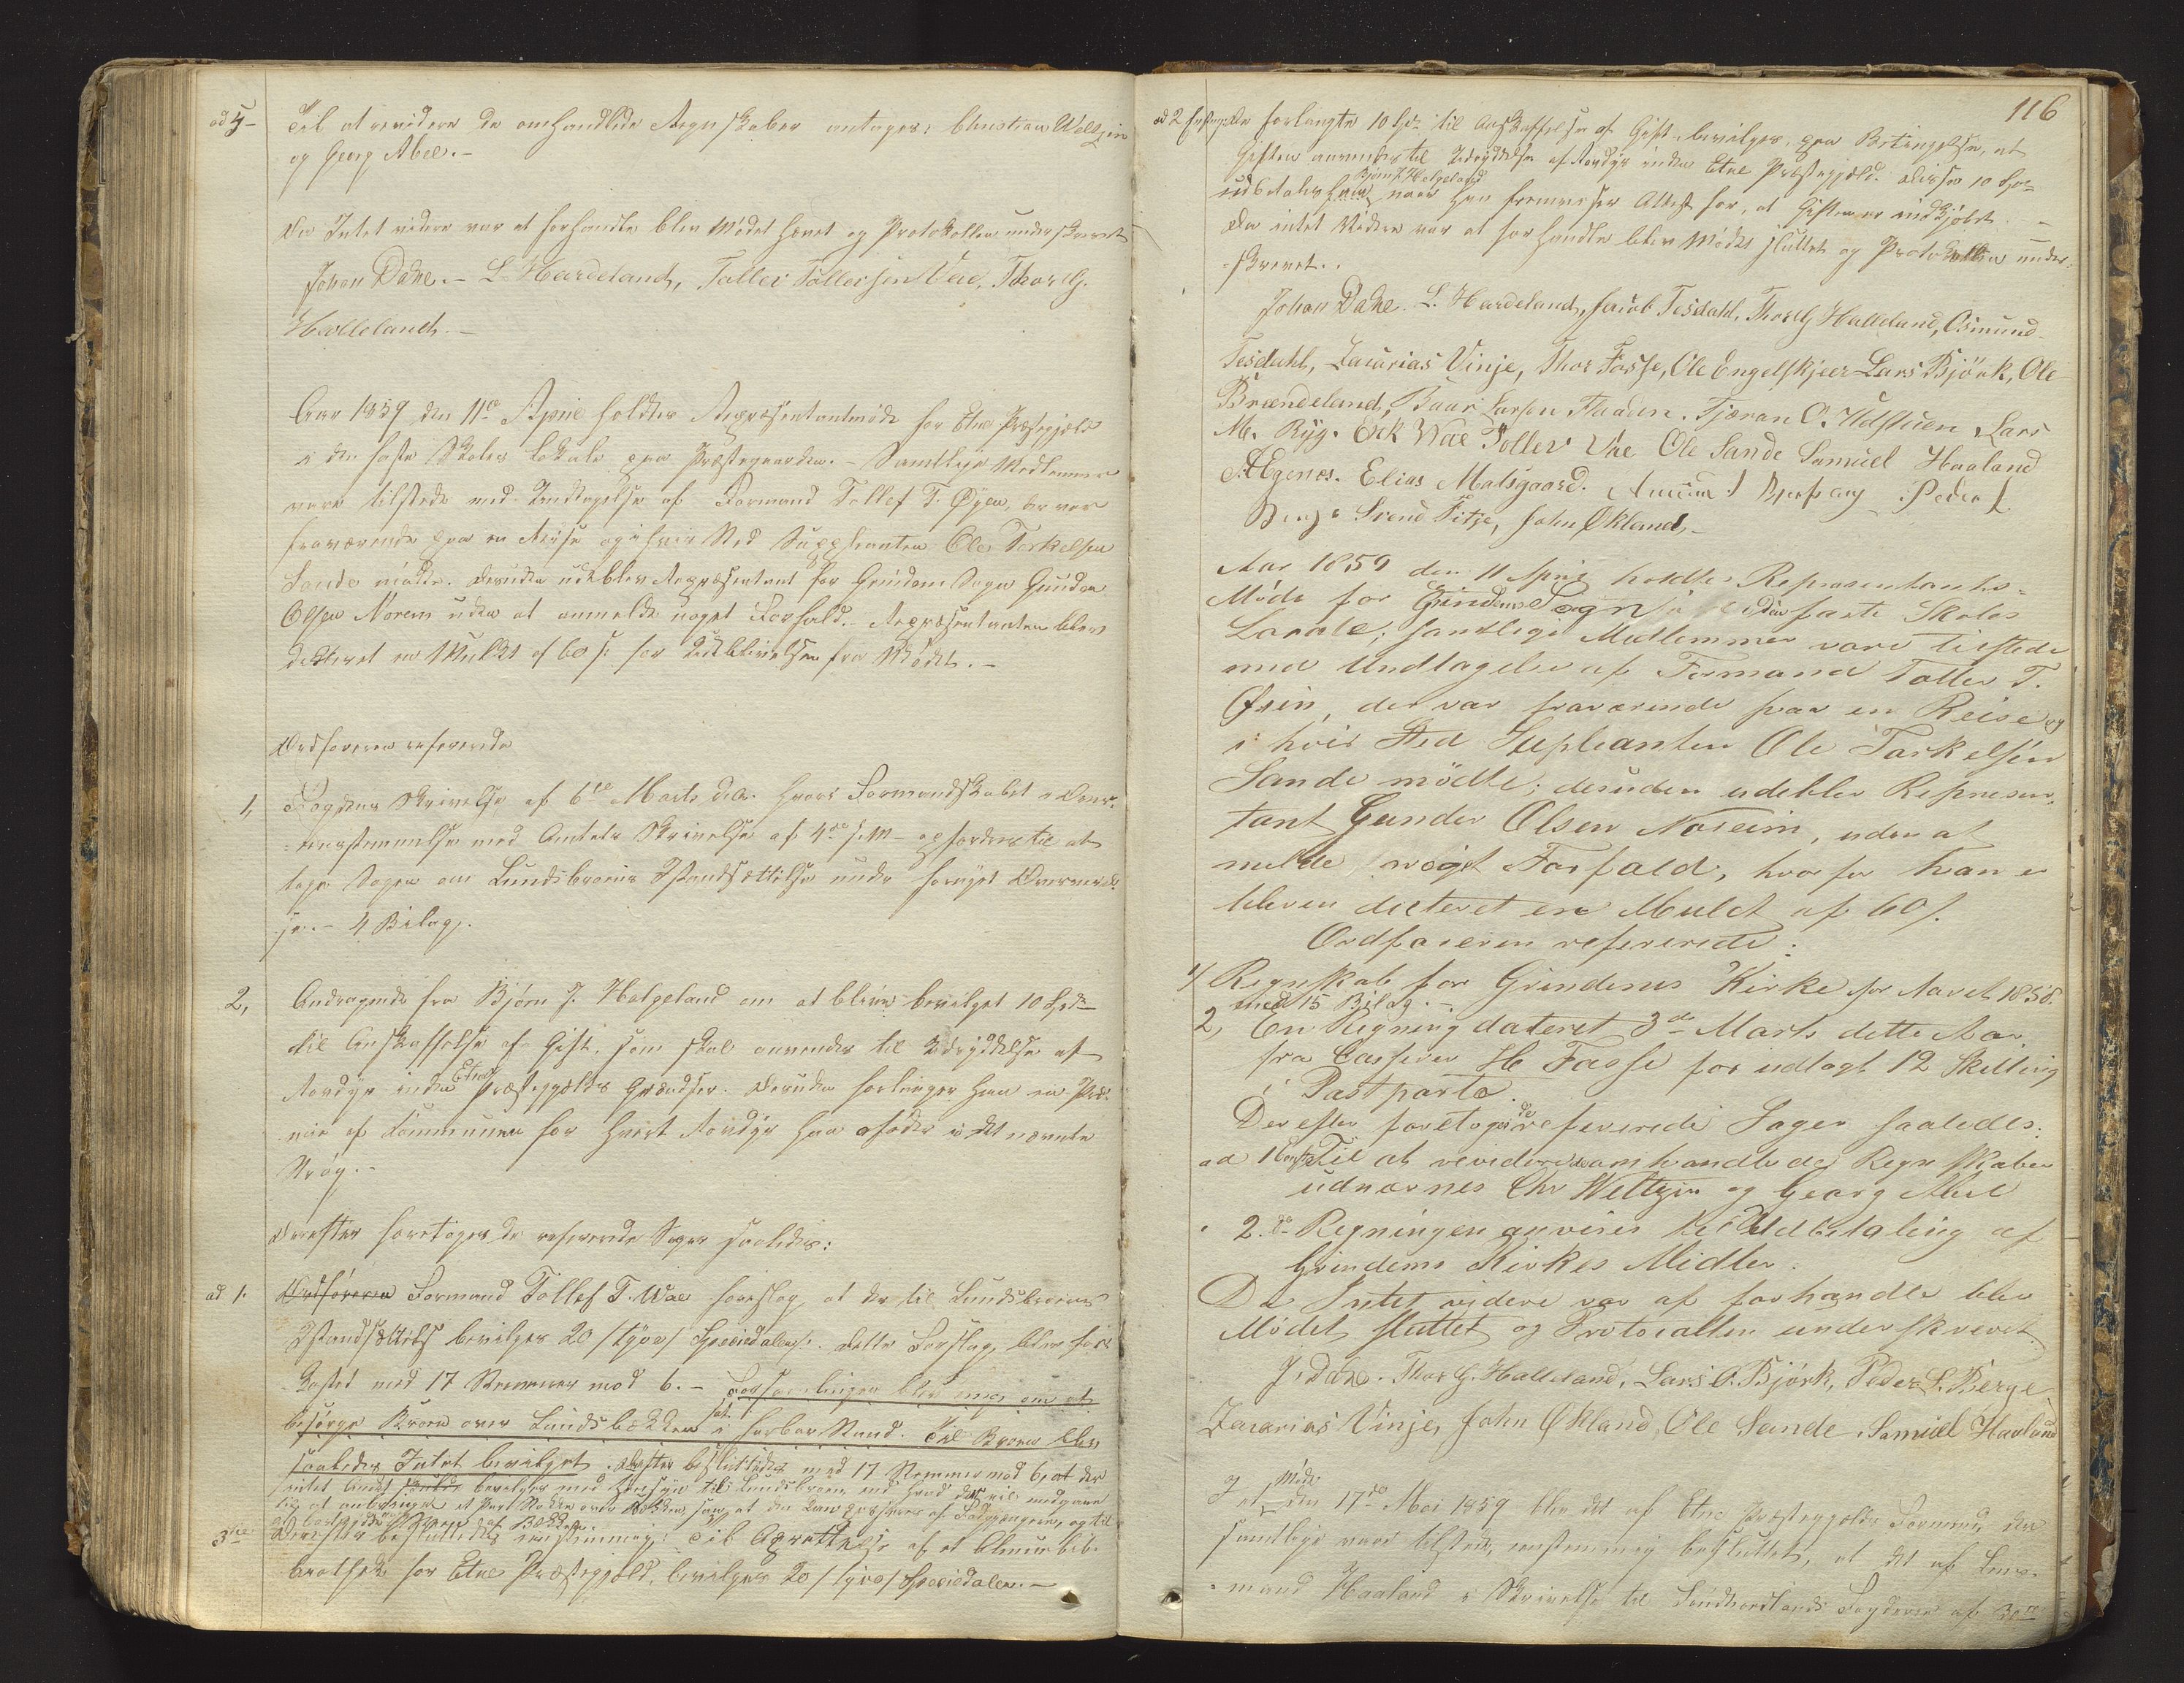 ad 4 - Til at revidere de omhandlede Regnskaber antages: Christian Weltzin
og Georg Abel. -
Da Intet videre var at forhandle blev Mødet hævet og Protokollen underskrevet
Johan Dahl. - L. Hardeland, Tollev Tollevsen Vae, Thor G.
Halleland. -
Aar 1859 den 11te April holdtes Repræsentantmøde for Etne Præstegjæld
i den faste Skoles Lokale paa Præstegaarden. - Samtlige Medlemmer
vare tilstede med Undtagelse af Formand Tollef T. Øyen, der var
fraværende paa en Reise og i hvis Sted Suppleanten Ole Torkelsen
Sande mødte. Desuden udeblev Repræsentant for Grindem Sogn Gunder
Olsen Norem uden at anmelde noget Forfald. - Repræsentanten blev
dikteret en Mulkt af 60 s for Udeblivelsen fra Mødet. -
Ordføreren refererede
1, Fogdens Skrivelse af 6te Marts d.A. hvori Formandskabet i Overens-
=eensstemmelse med Amtets Skrivelse af 4de s.M. opfordres til at
tage Sagen om Lundsbroens Istandsættelse under fornyet Overveiel-
se. - 4 Bilag.
2, Andragende fra Bjørn J. Helgeland om at blive bevilget 10 Spd
til Anskaffelse af Gift, som skal anvendes til Udryddelse af
Rovdyr inden Etne Præstegjælds Grændser. Desuden forlanger han en Præ-
mie af Kommunen for hvert Rovdyr han øder i det nævnte
Strøg. -
Derefter foretoges de refererede Sager saaledes:
ad 1. Ordføreren Formand Tollef T. Wae foreslog at der til Lundsbroens
Istandsættelse bevilges 20 /tyve/ Speciedaler. Dette Forslag blev for-
kastet med 17 Stemmer mod 6. - Forsamlingen blev enig om at
besørge Broen over Lundsbækken sat i farbar Stand. Til Broen blev
saaledes Intet bevilget. Derefter besluttedes med 17 Stemmer mod 6, at der
intet Andet skulde bevilges med Hensyn til Lundsbroen end hvad der vil medgaae
til at anbringe et Par Stokke over Bækken, saa at den kan passeres af Fodgængere, og til
3die Derefter besluttedes eenstemmig: Til Oprettelse af et Almuebib-
liothek for Etne Præstegjæld, bevilges 20 /tyve/ Speciedaler. -
116
ad 2 forlangte 10 Spd. til Anskaffelse af Gift bevilges, paa Betingelse, at
Giften anvendes til Udryddelse af Rovdyr inden Etne Præstegjæld. Disse 10 Spd
Bjørn J. Helgeland
udbetales ham, naar han fremviser Attest for, at Giften er indkjøbt. -
Da intet Videre var at forhandle blev Mødet sluttet og Protokollen under-
=skrevet.
Johan Dahl. L. Hardeland, Jacob Tesdahl, Thor G Halleland, Osmund
Tesdahl, Zacarias Vinje, Thor Fosse, Ole Engelskjeer Lars Bjørk, Ole
Brændeland, Baar Larsen Flaaden. Tjæran O. Udstuen Lars
M. Ryg. Erik Wae Tollev Vae Ole Sande Samuel Haaland
A Egenes. Elias Matsgaard. Peder L.
Berge Svend Fitje, John Økland. -
Aar 1859 den 11 April holdtes Representants-
Møde for Grindems Sogn i den faste Skoles
Locale; samtlige Medlemmer vare tilstede
med Undtagelse af Formand Tollev T.
Øien, der var fraværende paa en Reise og
i hvis Sted Supleanten Ole Torkelsen
Sande mödte; desuden udeblev Represen-
tant Gunder Olsen Noreim, uden at
melde noget Forfald, hvorfor han er
bleven decteret en Mulct af 60 s.
Ordføreren refererede:
1/ Regnskab for Grindems Kirke for Aaret 1858.
med 15 Bilag. -
2, En Regning dateret 3de Marts dette Aar
fra Casserer H Fosse for udlagt 12 Skilling
i Postporto.
Derefter foretoges de refererede Sager saaledes:
ad 1 Til at revidere de omhandlede Regnskaber
udnævnes Chr Weltzin og Georg Abel
" 2de Regningen anvises til Udbetaling af
Grindems Kirkes Midler.
Da Intet videre var at forhandle blev
Mødet sluttet og Protocollen underskrevet.
J. Dahl. Thor G. Halleland, Lars O. Bjørk, Peder L. Berge
Zacarias Vinje, John Økland, Ole Sande, Samuel Haaland
I et Møde den 17de Mai 1859 blev det af Etne Præstegjælds Formænd, der
samtlige vare tilstede, eenstemmig besluttet, at det af Lens-
=mand Haaland i Skrivelse til Søndhordlands Fogderie af 30te